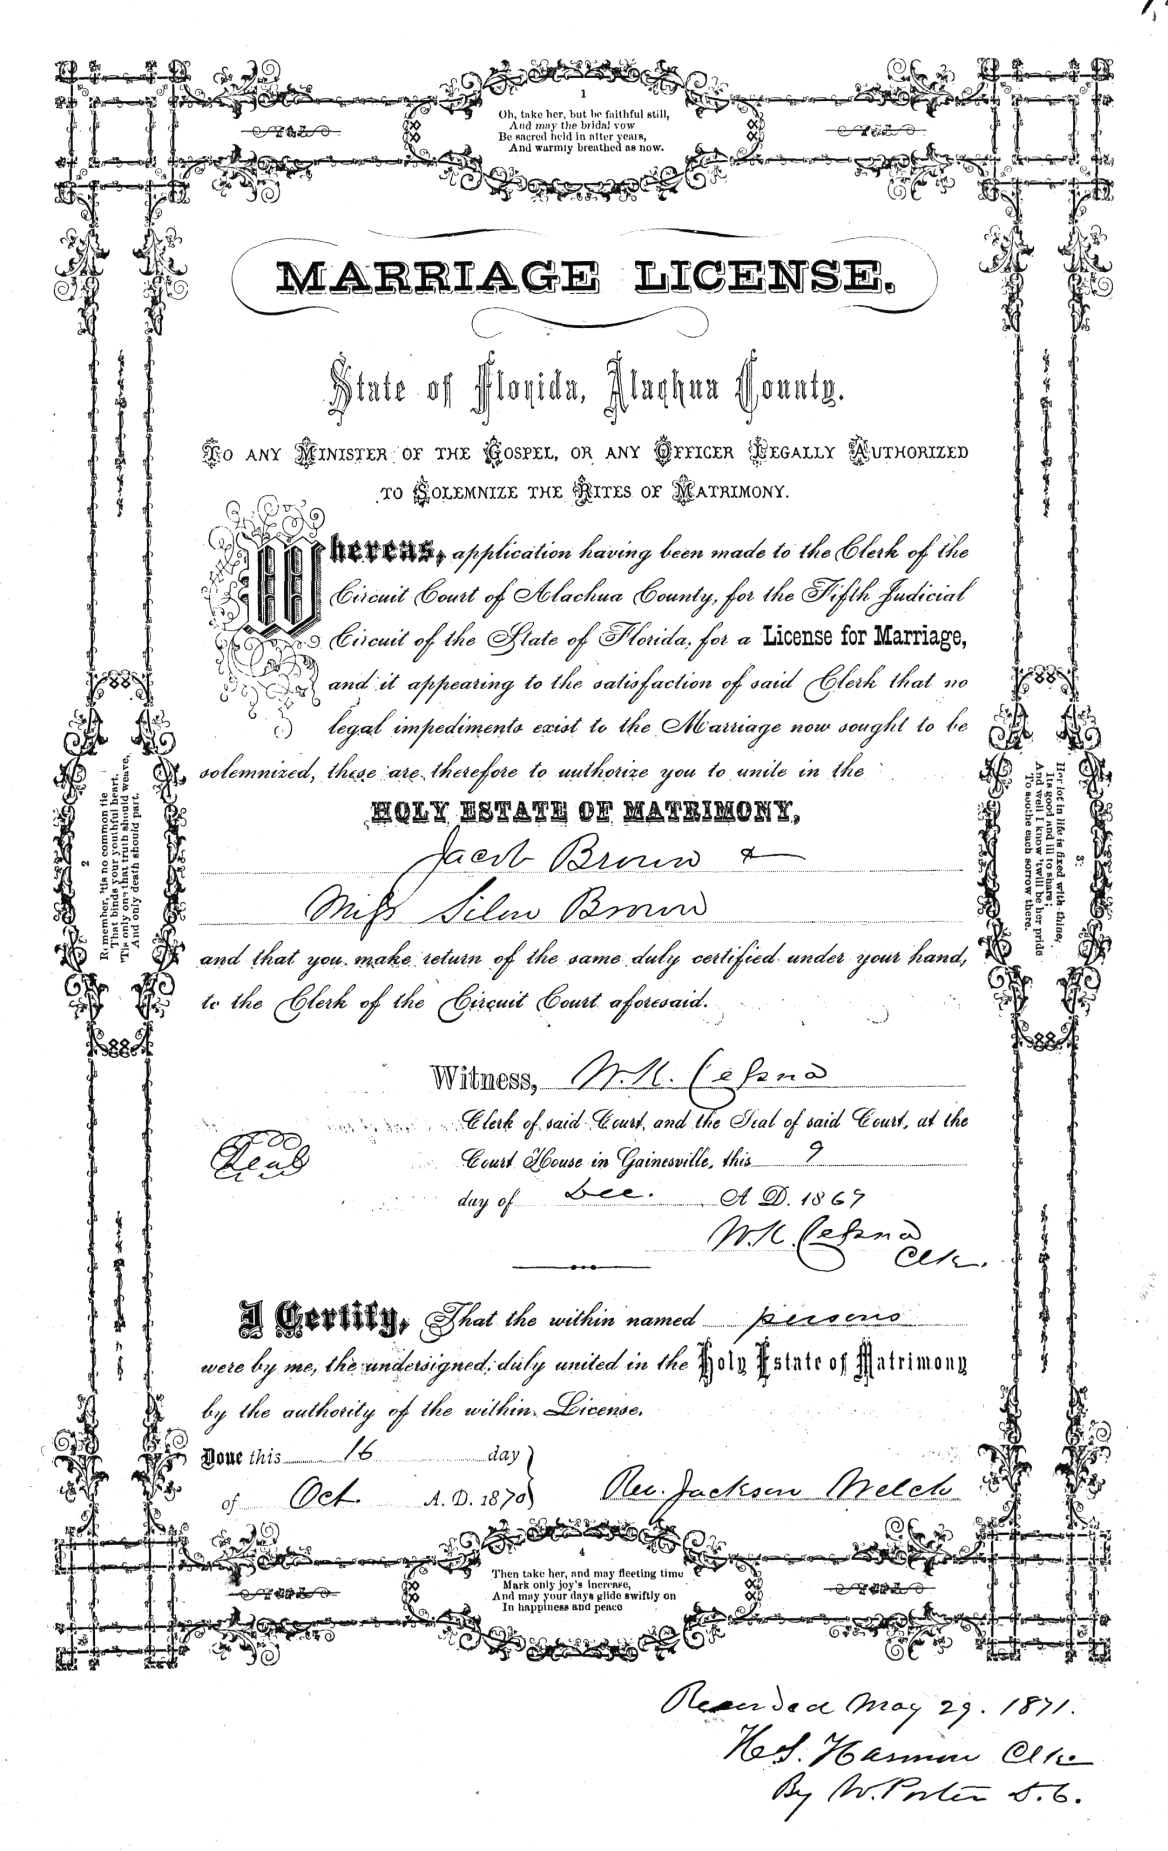 1
Oh, take her, but be faithful still,
And may the bridal vow
Be sacred held in after years,
And warmly breathed as now.
MARRIAGE LICENSE.
State of Florida, Alachua County.
TO ANY MINISTER OF THE GOSPEL, OR ANY OFFICER LEGALLY AUTHORIZED
TO SOLEMNIZE THE RITES OF MATRIMONY.
Whereas, application having been made to the Clerk of the
Circuit Court of Alachua County, for the Fifth Judicial
Circuit of the State of Florida, for a License for Marriage,
and it appearing to the satisfaction of said Clerk that no
legal impediments exist to the Marriage now sought to be
solemnized, these are therefore to authorize you to unite in the
HOLY ESTATE OF MATRIMONY,
Jacob Brown &
Miss Brown
and that you make return of the same duly certified under your hand,
to the Clerk of the Circuit Court aforesaid.
2
Remember, 'tis no common tie
That binds your youthful heart,
'Tis only one that truth should weave,
And only death should part.
3
Her lot in life is fixed with thine,
Its good and ill to share;
And well I know 'twill be her pride
To soothe each sorrow there.
Witness, W. K. Cessna
Clerk of said Court, and the Seal of said Court, at the
Seal
Court House in Gainesville, this 9
day of Dec. A D. 1869
W. K. Cessna
Clk.
I Certify, That the within named persons
were by me, the undersigned, duly united in the Holy Estate of Matrimony
by the authority of the within License.
Done this 16 day
of Oct. A. D. 1870
Rev. Jackson Welch
4
Then take her, and may fleeting time
Mark only joy's increase,
And may your days glide swiftly on
In happiness and peace
Recorded May 29. 1871.
H. S. Harmon Clk
By W. Porter D. C.